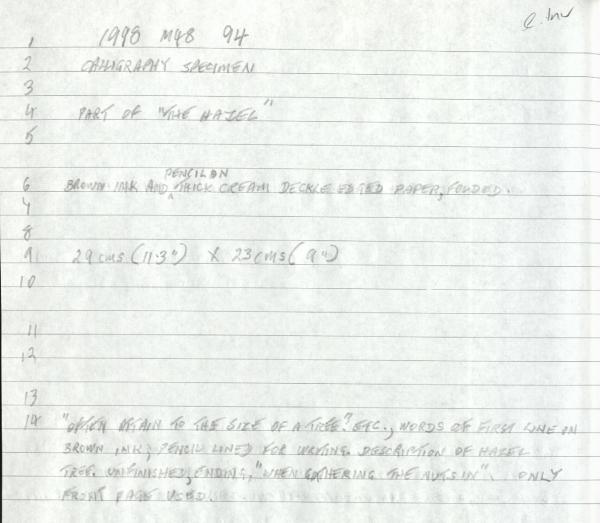 e. Inv
1 1998 M48 94
2 CALLIGRAPHY SPECIMEN
3
4 PART OF "THE HAZEL"
5
PENCIL ON
6 BROWN INK AND THICK CREAM DECKLE EDGED PAPER, FOLDED.
7
8
9 29 cms (11.3") X 23 cms (9")
10
11
12
13
14 "OFTEN ATTAIN TO THE SIZE OF A TREE" ETC., WORDS OF FIRST LINE IN
BROWN INK; PENCIL LINES FOR WRITING. DESCRIPTION OF HAZEL
TREE. UNFINISHED, ENDING, "WHEN GATHERING THE NUTS IN". ONLY
FRONT PAGE USED.